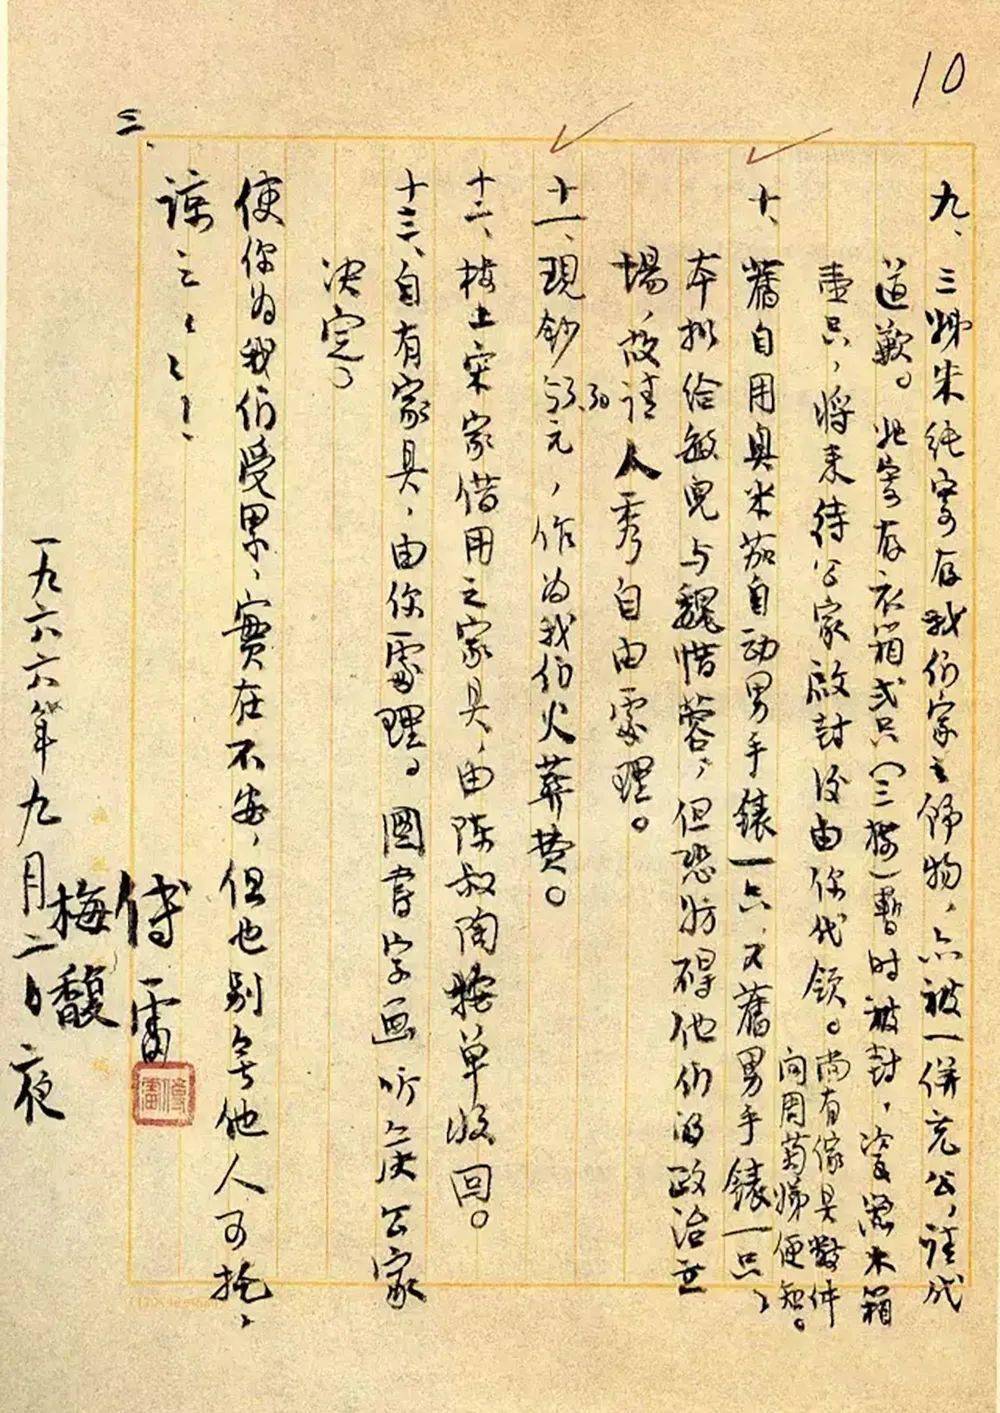 10
三、
九、三姊朱纯寄存我们家之饰物，亦被一併充公，请代
道歉。她寄存衣箱弍只（三楼）暫时被封，瓷器木箱
壹只，将来待公家啟封後由你代領。尚有傢具數件
问周菊娣便知。
十、舊自用奥米茄自动男手錶一只，又舊男手錶一只，
本拟给敏兒与魏惜蓉，但恐妨碍他们的政治立
場，故请人秀自由處理。
十一、現鈔53.30元，作为我们火葬费。
十二、楼上宋家借用之家具，由陈叔陶按单收回。
十三、自有家具，由你處理。圖書字画听候公家
决定。
使你为我们受累，實在不安，但也别无他人可托，
諒之諒之！
傅雷
傅雷
梅馥
一九六六年九月二日夜